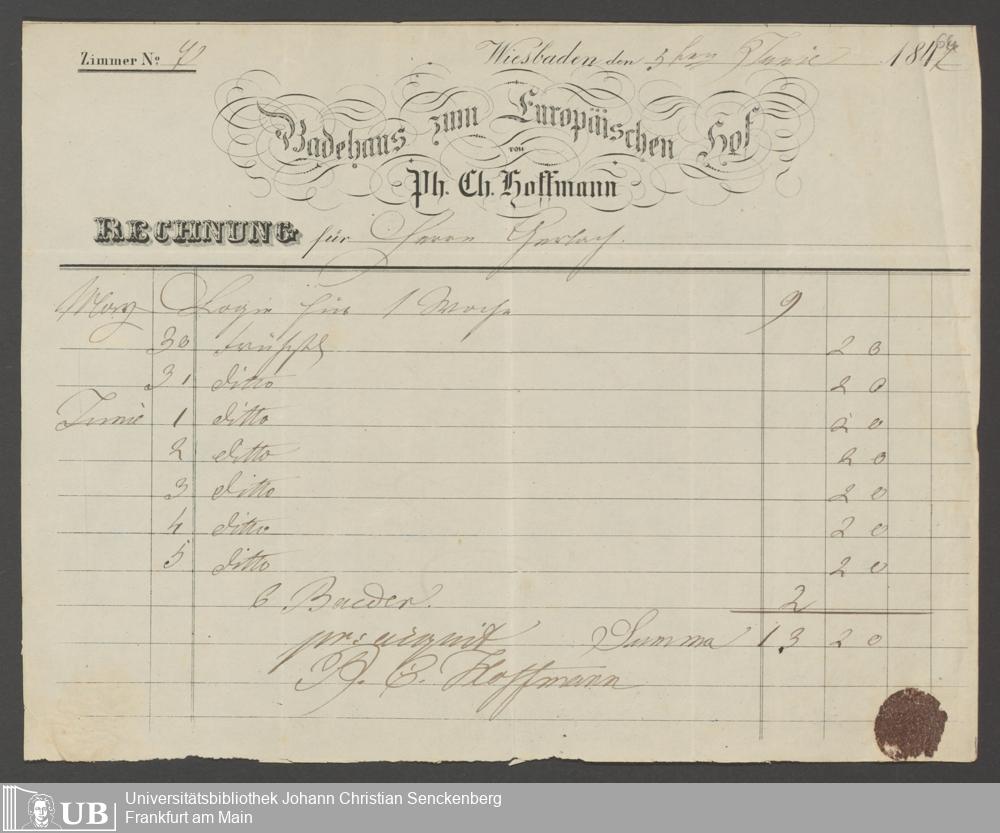 Zimmer No.
Wiesbaden den 5ten Junie 184
Badehaus zum Europäischen Hof
von
Ph. Ch. Hoffmann
RECHNUNG für Herrn Gerlach.
May Logie für 1 Woche 9
30 Frühst 20
31 ditto 20
Junie 1 ditto 20
2 ditto 20
3 ditto 20
4 ditto 20
5 ditto 20
6 Baeder. 2
pr: aiquit Summa 13 20
C. Hoffmann
UB
Universitätsbibliothek Johann Christian Senckenberg
Frankfurt am Main